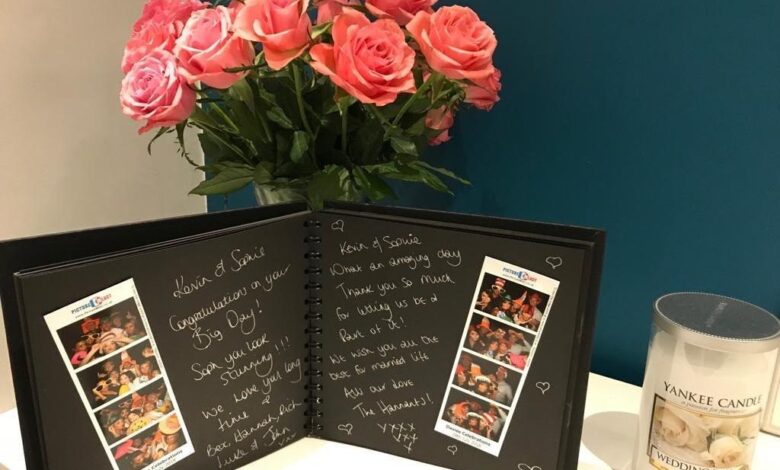 Kevin & Sophie
Congratulations on your
Big Day!
Soph you look
stunning!!!
We love you long
time
Bex, Hannah, Rich
Luke & John
PICTURE BLAST
Kevin & Sophie
What an amazing day
Thank you so much
for letting us be a
Part of it!
We wish you all the
best for married life
All our love
The Hannants!
xxxx
xxx
PICTURE BLAST
Davies Celebrations
Davies Celebrations
YANKEE CANDLE
WEDDING